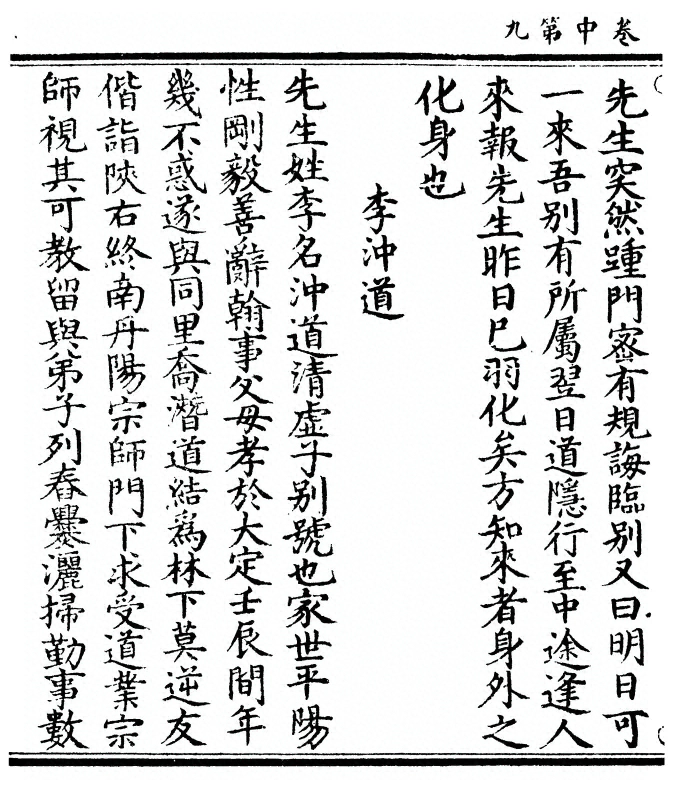 卷中第九
先生突然踵門密有規誨臨別又曰明日可
一來吾別有所屬翌日道隱行至中途逢人
來報先生昨日已羽化矣方知來者身外之
化身也
李沖道
先生姓李名沖道清虛子别號也家世平陽
性剛毅善辭翰事父母孝於大定壬辰間年
幾不惑遂與同里喬潛道結爲林下莫逆友
偕詣陝右終南丹陽宗師門下求受道業宗
師視其可教留與弟子列舂爨灑掃勤事數